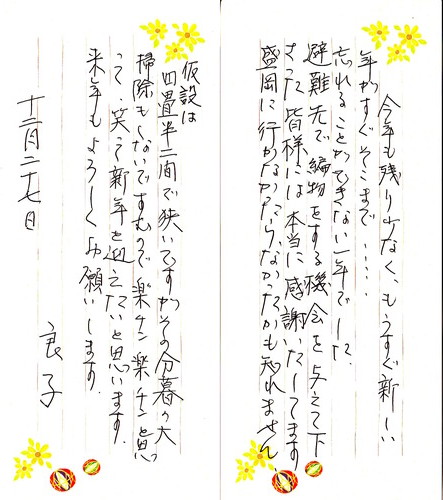 今年も残り少なく、もうすぐ新しい
年がすぐそこまで‥‥‥
忘れることができない一年でした
避難先で編物をする機会を与えて下
さった皆様には本当に感謝いたしてます
盛岡に行かなかったらなかったかも知れません、
仮設は
四畳半二間で狭いですがその分暮の大
掃除もしないですむので楽チン楽チンと思
って、笑って新年を迎えたいと思います。
来年もよろしくお願いします。
十二月二十七日
良子